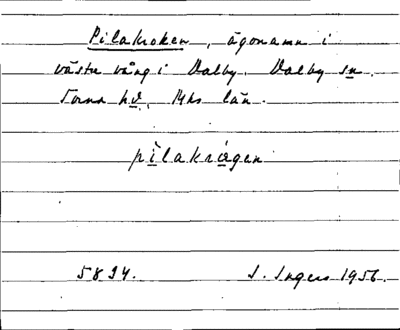 Pilakroken, ägonamn i
västra vång i Dalby. Dalby sn.
Torna hd, Mhs län.
pìlakrågen
5894. I. Ingers 1956.